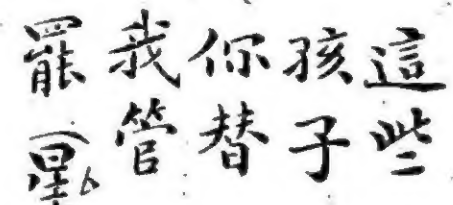 這些
孩子
你替
我管
罷